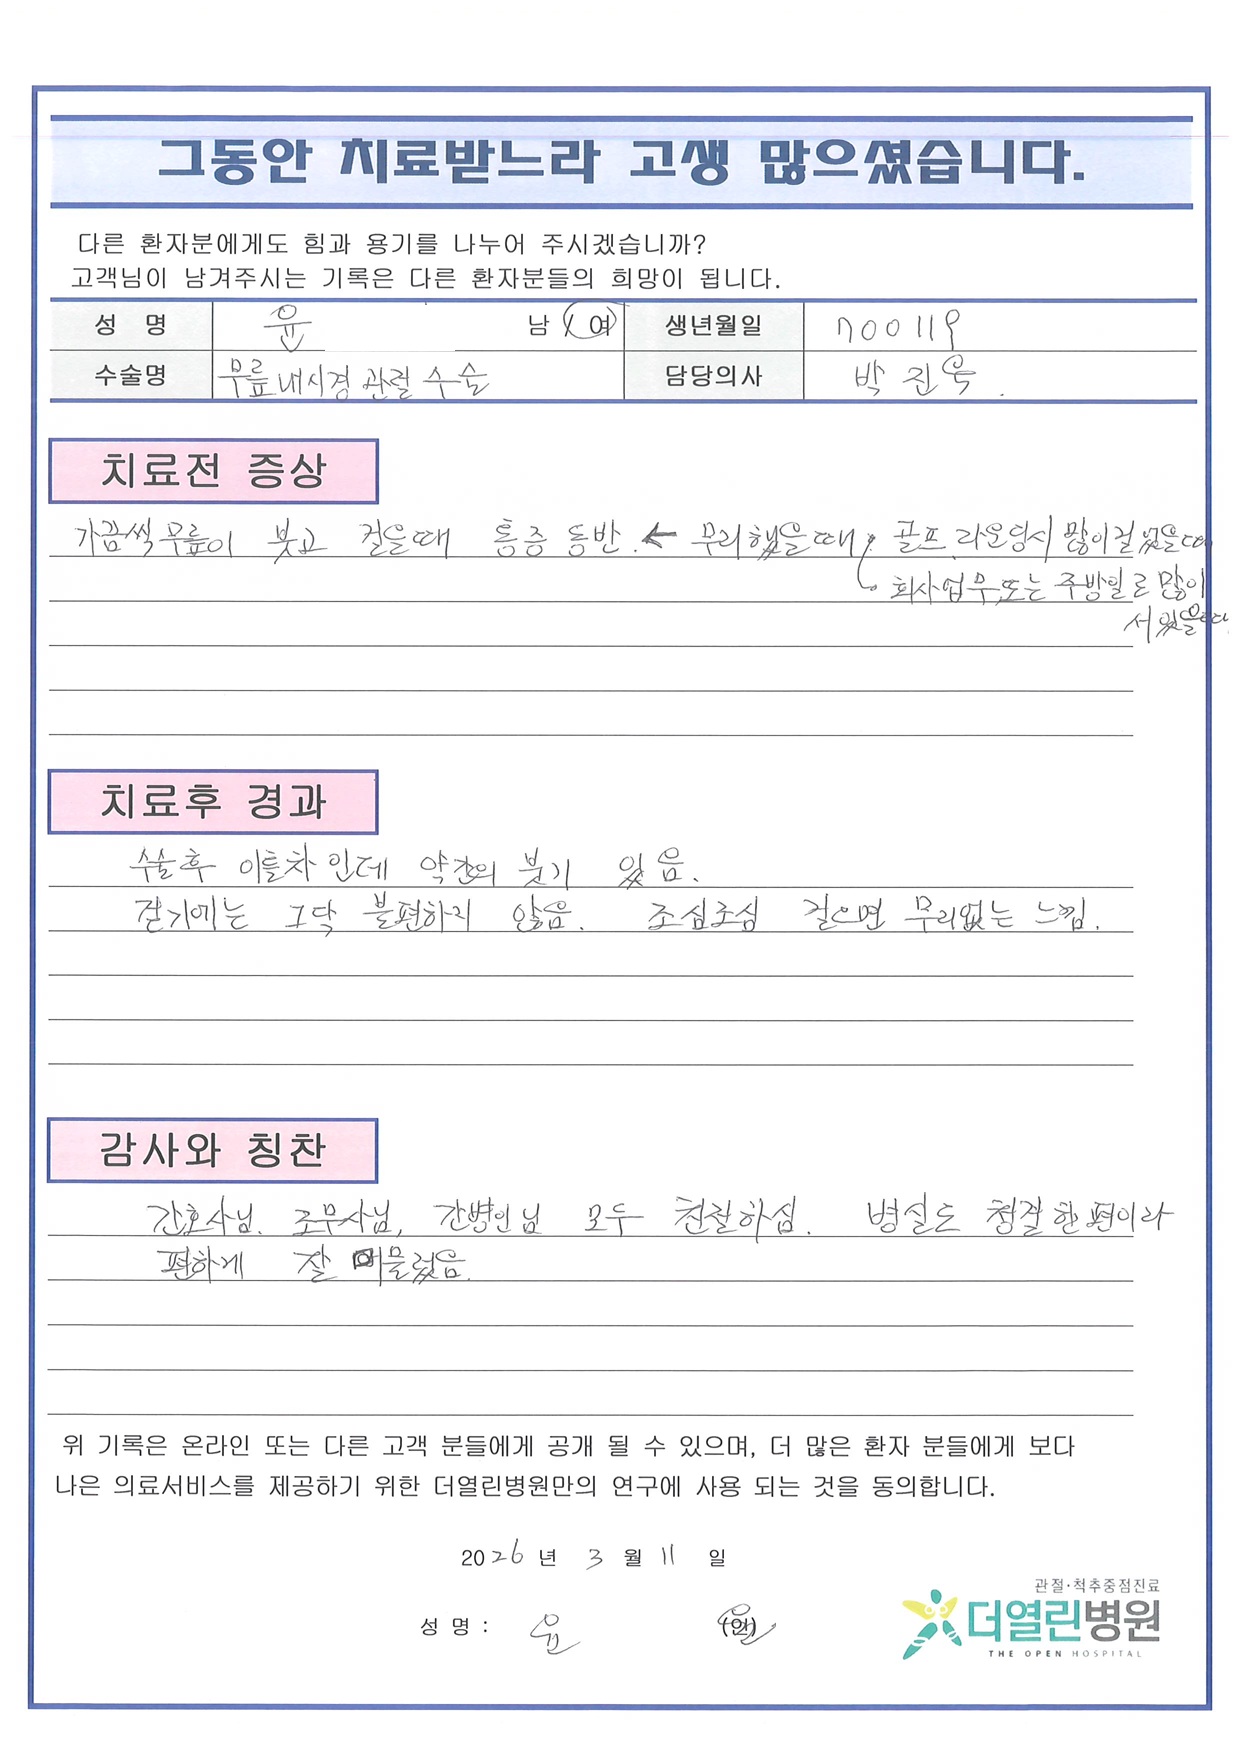 그동안 치료받느라 고생 많으셨습니다.
다른 환자분에게도 힘과 용기를 나누어 주시겠습니까?
고객님이 남겨주시는 기록은 다른 환자분들의 희망이 됩니다.
성 명 윤 남 / 여 생년월일 700119
수술명 무릎 내시경 관절 수술 담당의사 박진욱.
치료전 증상
가끔씩 무릎이 붓고 걸을때 통증 동반. ← 무리했을때, 골프 라운딩시 많이 걸었을때
회사업무 또는 주방일로 많이
서있을때
치료후 경과
수술후 이틀차인데 약간의 붓기 있음.
걷기에는 그닥 불편하지 않음. 조심조심 걸으면 무리없는 느낌.
감사와 칭찬
간호사님. 조무사님, 간병인님 모두 친절하심. 병실도 청결한 편이라
편하게 잘 머물렀음.
위 기록은 온라인 또는 다른 고객 분들에게 공개 될 수 있으며, 더 많은 환자 분들에게 보다
나은 의료서비스를 제공하기 위한 더열린병원만의 연구에 사용 되는 것을 동의합니다.
2026 년 3 월 11 일
성 명 : 윤 (인)
관절·척추중점진료
더열린병원
THE OPEN HOSPITAL